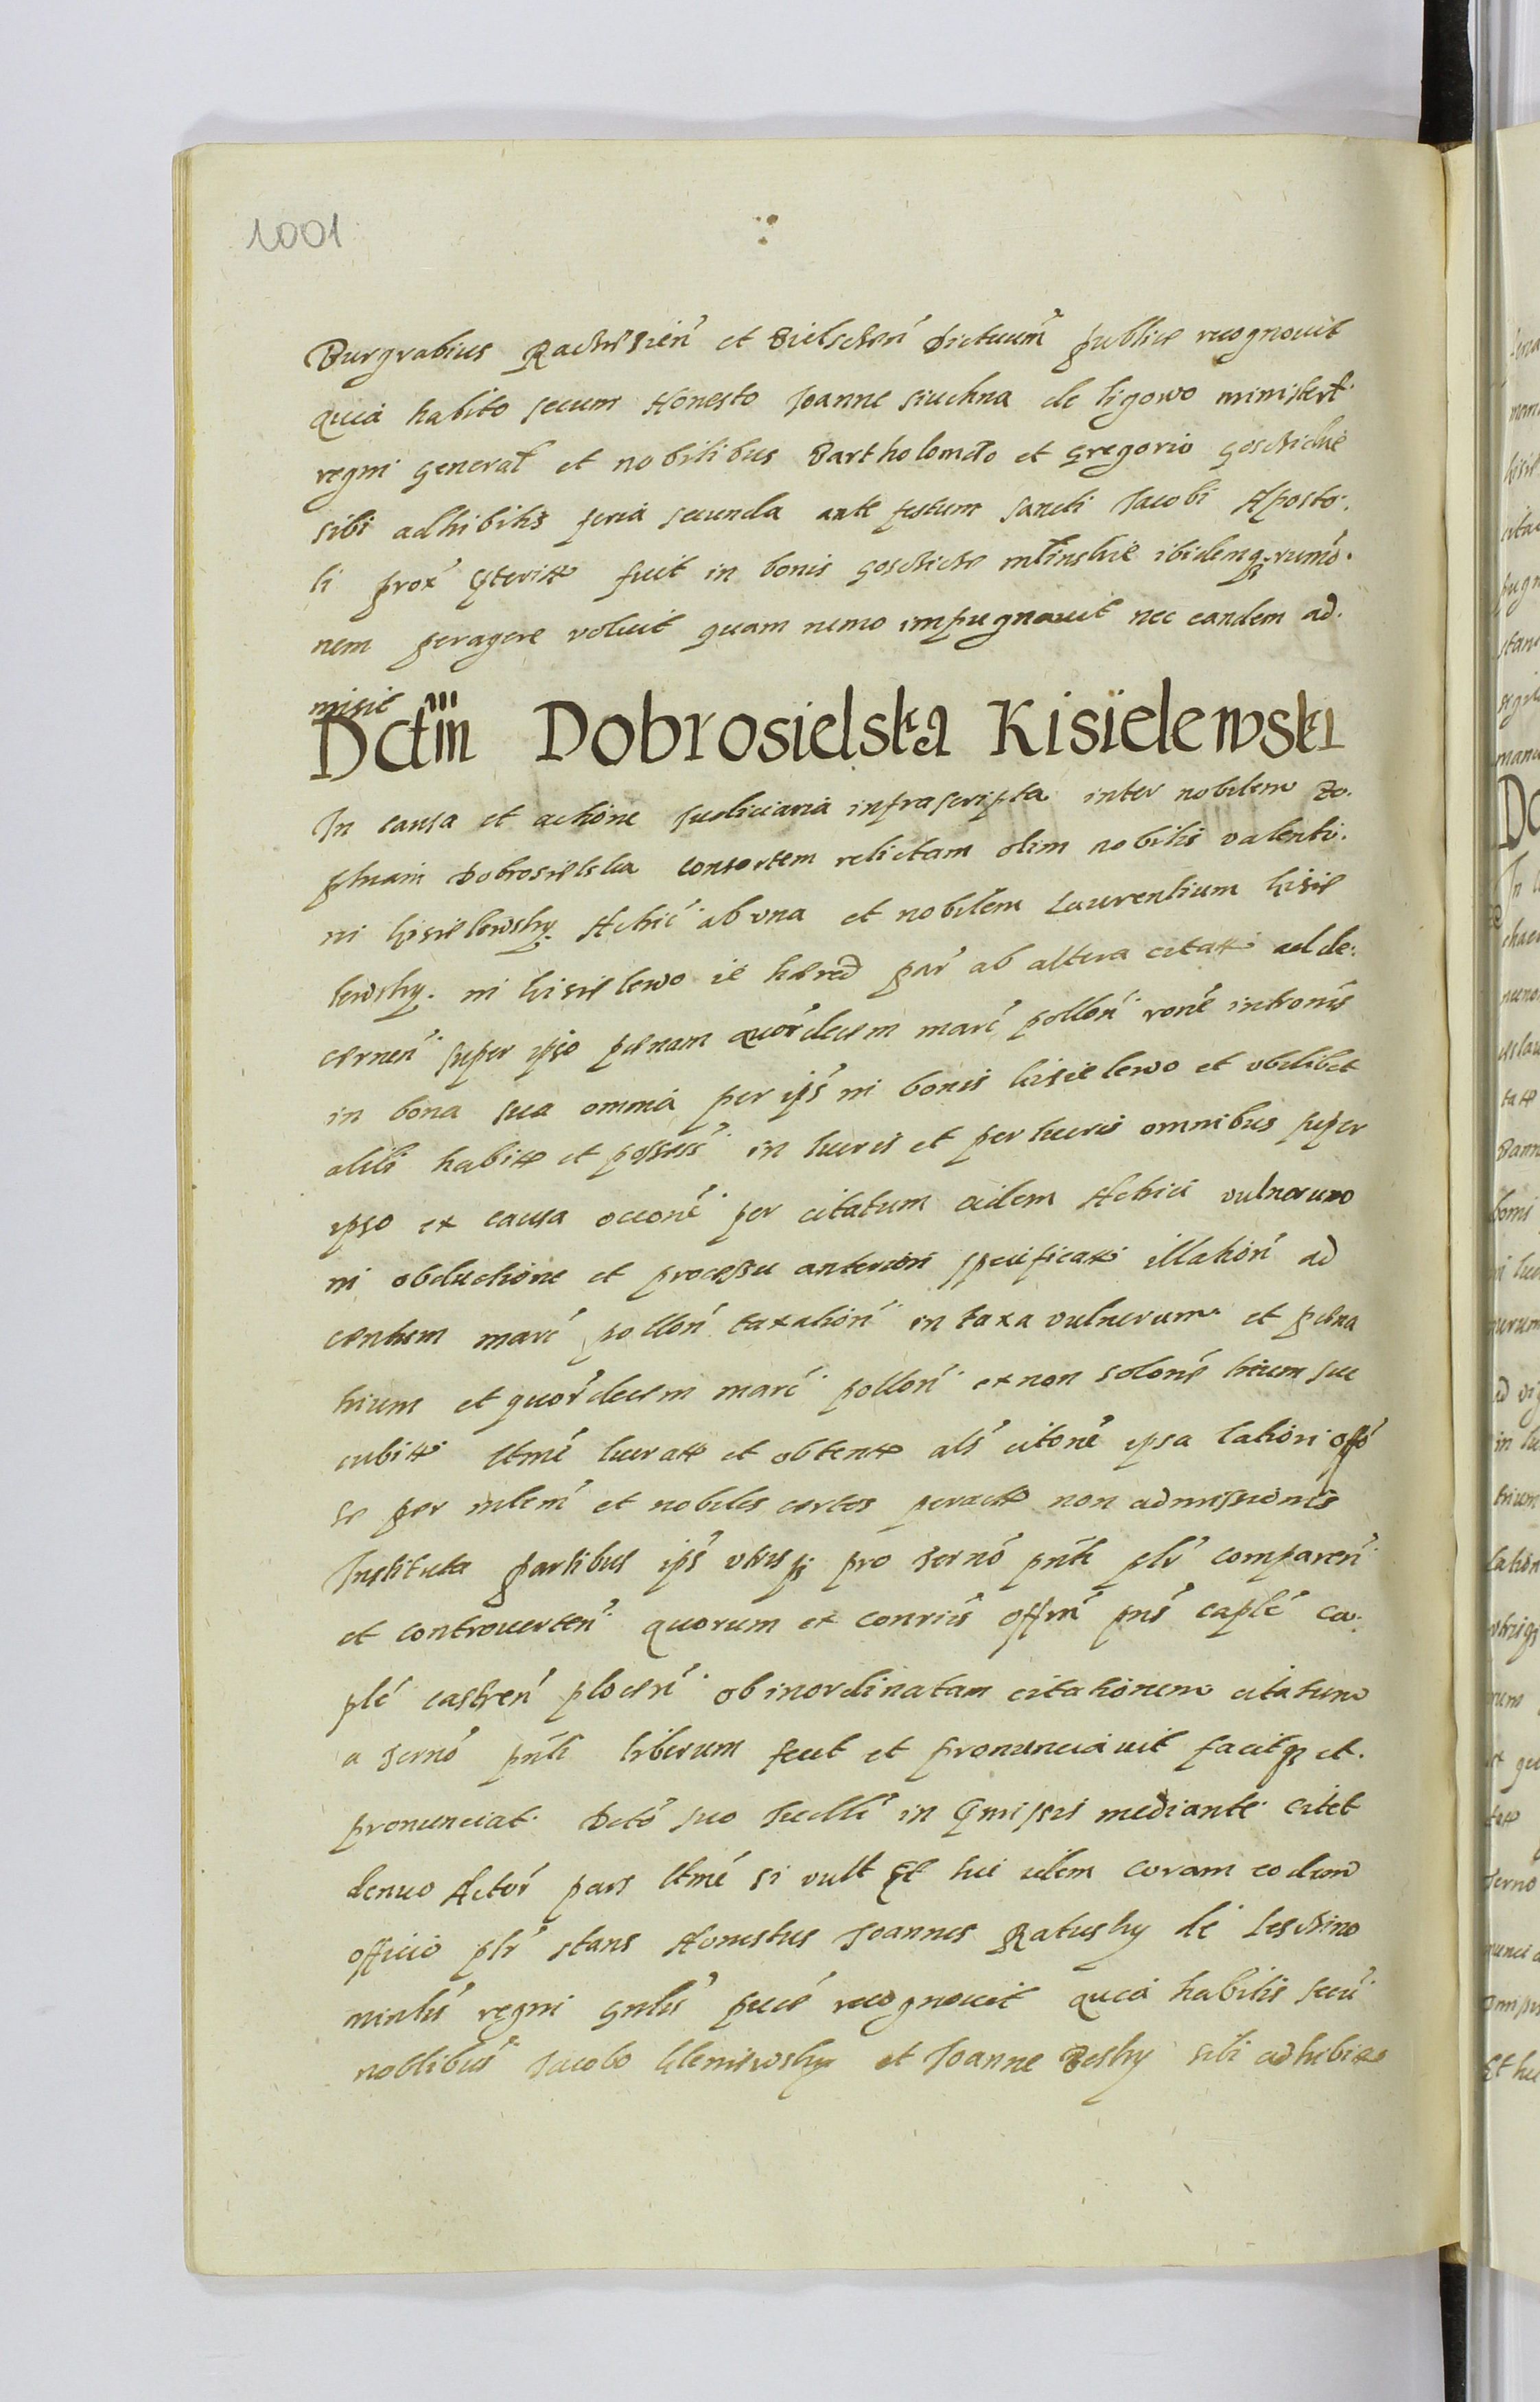 1001
Burgrabius Raczȩzien̄ et Bielschen̄ dictuum̄ publice recognouit
quia habito secum Honesto Joanne siuchna de ligowo ministerl̄
regni general̄ et nobilibus Bartholomeo et Gregorio
sibi adhibitis feria secunda ante festum sancti Jacobi Aposto.
li prox̄ fuit in bonis ibidemq;
nem peragere voluit quam nemo impugnauit nec eandem ad.
misit
Dctm̄ Dobrosielska Kisielewski
In causa et actione Judiciaria infrascripta inter nobilem Zo.
phiam Dobrosielska consortem relictam olim nobilis valenti.
ni kisielewsky. Actric̄ ab vna et nobilem Laurentium kisie
lewsky. in kisielewo hæred̄ par̄ ab altera citat̄ ad de.
cernen̄ super ipso pænam quor̄decem marc̄ pollon̄ rone intronis̄
in bona sua omnia per ips̄ in bonis kisielewo et vbilibet
alibi habit̄ et possess̄ in lucris et perlucris omnibus super
ipso ex causa occone per citatum eidem Actrici vulnerum
in obductione et processu anteriori specificat̄ illation̄ ad
centum marc̄ pollon̄ taxation̄ in taxa vulnerum et pæna
trium et quor̄decem marc̄ pollon̄ ex non solone trium suc
cubit̄ ltmē lucrat̄ et obtent̄ als̄ citone ipsa latiori offō
se per mlem̄ et nobiles certos peract̄ non admissionis
Instituta partibus ips̄ vtrisq; pro termō pn̄ti plr̄ comparen̄
et controuerten̄ quorum ex conriis̄ offm̄ pns̄ caplē ca.
plē castren̄ plocen̄ ob inordinatam citationem citatum
a termō pn̄ti liberum fecit et pronunciauit facitq; et.
pronunciat. Dctō suo mediante citet
denuo Actor̄ pars ltmē si vult Et hic idem coram eodem
officio plr̄ stans Honestus Joannes Ratusky de Lesczino
mintlis̄ regni gnlis̄ recognouit quia habitis secū
noblibus̄ Jacobo kleniewsky et Joanne Besky sibi adhibit̄